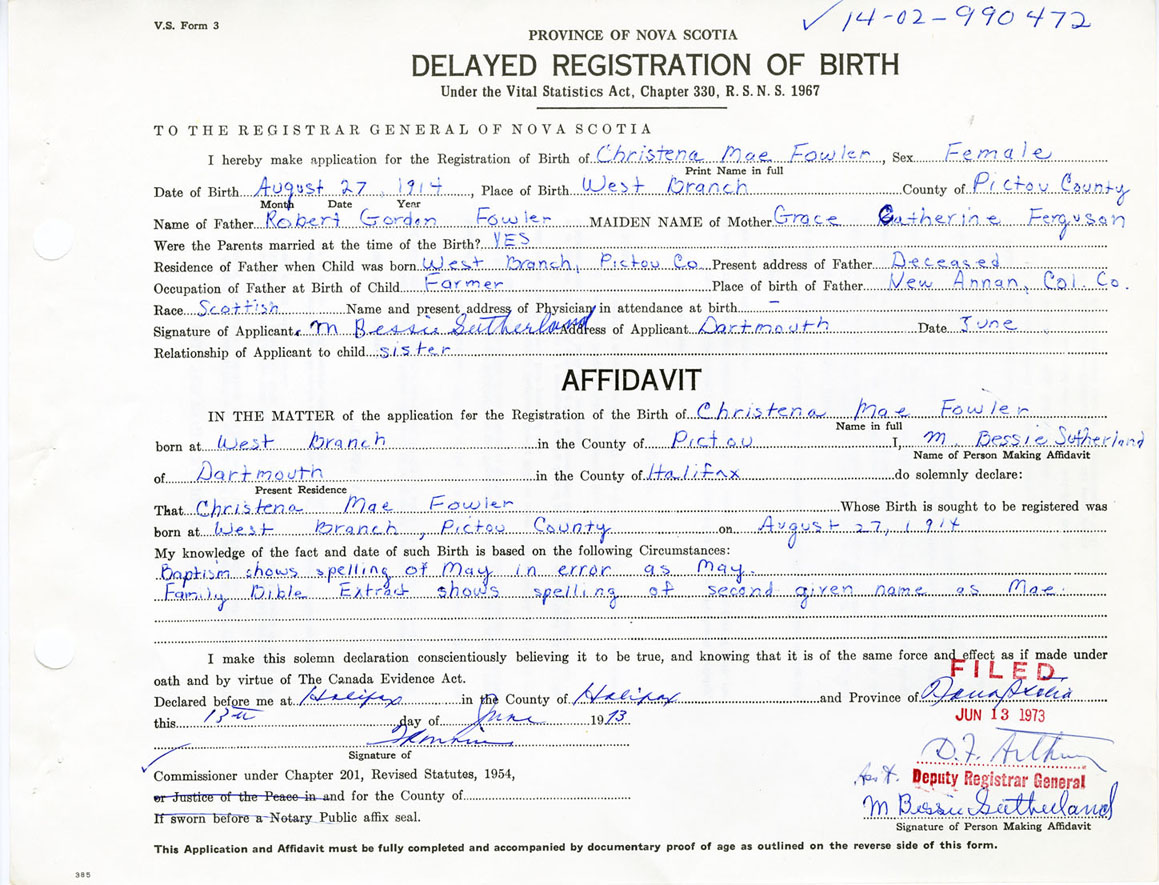 V.S. Form 3
✓ 14-02-990472
PROVINCE OF NOVA SCOTIA
DELAYED REGISTRATION OF BIRTH
Under the Vital Statistics Act, Chapter 330, R. S. N. S. 1967
TO THE REGISTRAR GENERAL OF NOVA SCOTIA
I hereby make application for the Registration of Birth of Christena Mae Fowler, Sex Female
Print Name in full
Date of Birth August 27, 1914, Place of Birth West Branch County of Pictou County
Month Date Year
Name of Father Robert Gorden Fowler MAIDEN NAME of Mother Grace Catherine Ferguson
Were the Parents married at the time of the Birth? YES
Residence of Father when Child was born West Branch, Pictou Co. Present address of Father Deceased
Occupation of Father at Birth of Child Farmer Place of birth of Father New Annan, Col. Co.
Race Scottish Name and present address of Physician in attendance at birth –
Signature of Applicant M Bessie Sutherland Address of Applicant Dartmouth Date June
Relationship of Applicant to child sister
AFFIDAVIT
IN THE MATTER of the application for the Registration of the Birth of Christena Mae Fowler
Name in full
born at West Branch in the County of Pictou I, M. Bessie Sutherland
Name of Person Making Affidavit
of Dartmouth in the County of Halifax do solemnly declare:
Present Residence
That Christena Mae Fowler Whose Birth is sought to be registered was
born at West Branch, Pictou County on August 27, 1914
My knowledge of the fact and date of such Birth is based on the following Circumstances:
Baptism shows spelling of May in error as May.
Family Bible Extract shows spelling of second given name as Mae.
I make this solemn declaration conscientiously believing it to be true, and knowing that it is of the same force and effect as if made under
oath and by virtue of The Canada Evidence Act.
FILED
Declared before me at Halifax in the County of Halifax and Province of Nova Scotia
this 13th day of June 1973
JUN 13 1973
Signature of
D.F. Arthur
Commissioner under Chapter 201, Revised Statutes, 1954,
Deputy Registrar General
or Justice of the Peace in and for the County of
M Bessie Sutherland
If sworn before a Notary Public affix seal.
Signature of Person Making Affidavit
This Application and Affidavit must be fully completed and accompanied by documentary proof of age as outlined on the reverse side of this form.
385